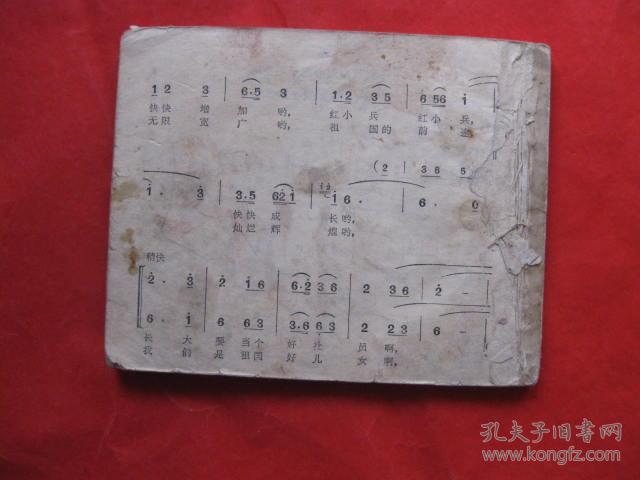 1 2 3 | 6·5 3 | 1·2 3 5 | 6 56 i
快快 增 加 哟, 红小 兵 红小 兵,
无限 宽 广 哟, 祖 国的 前 途
(2 | 3 6 5
i· 3 | 3·5 62i | i 6· | 6· 0
快快 成 长哟,
灿烂 辉 煌哟,
稍快
2· 3 | 2 i 6 | 6·2 3 6 | 2 3 6 | 2 –
6· 1 | 6 6 3 | 3·6 6 3 | 2 2 3 | 6 –
长 大 要 当个 好 社 员 啊,
我 们 是 祖国 好 儿 女 啊,
孔夫子旧书网
www.kongfz.com